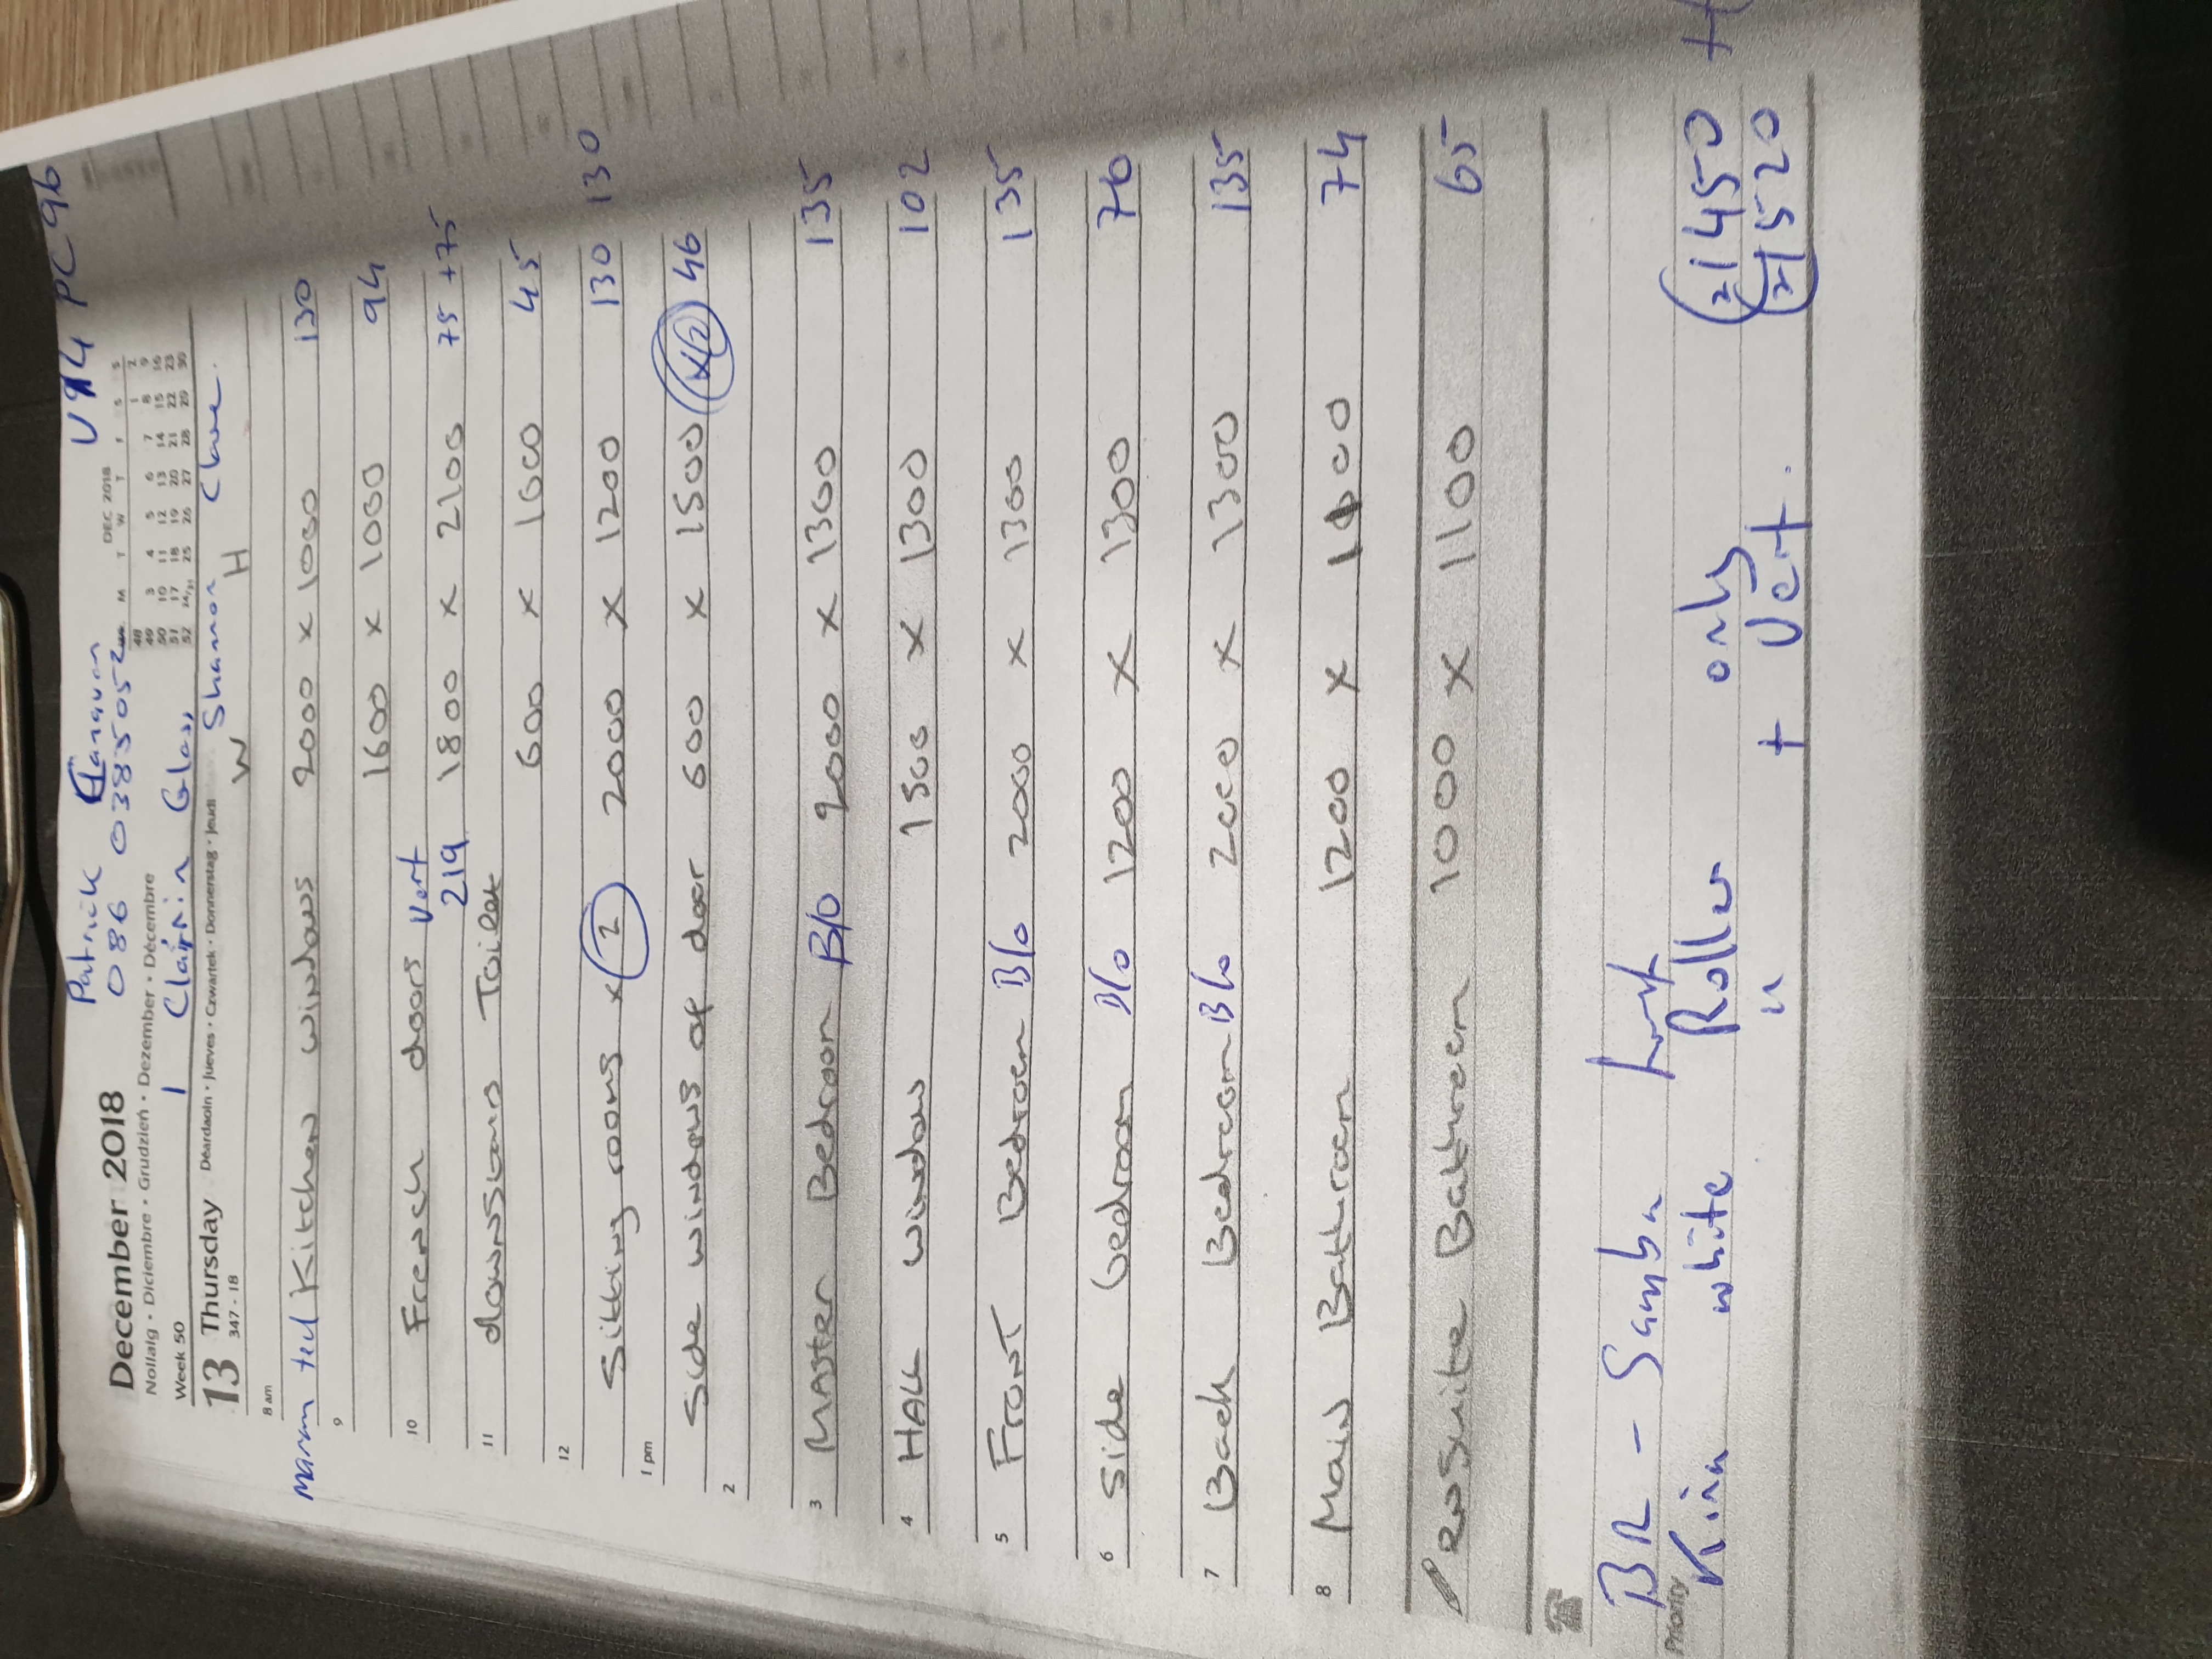 Patrick Canavan V94 PC96
086 0385052
December 2018
Nollaig • Diciembre • Grudzień • Dezember • Dicembre • Décembre
DEC 2018
M T W T F S S
48 1 2
49 3 4 5 6 7 8 9
50 10 11 12 13 14 15 16
51 17 18 19 20 21 22 23
52 24/31 25 26 27 28 29 30
Week 50
1 Clairin Glas,
13 Thursday Déardaoin • Jueves • Czwartek • Donnerstag • Jeudi
347 - 18
Shannon Clare.
W H
8 am
Kitchen windows 2000 x 1000 130
9
1600 x 1000 94
10
French doors Vert 1800 x 2100 75 + 75
219
11
downstairs Toilet
600 x 1000 45
12
Sitting rooms x 2 2000 x 1200 130 130
1 pm
Side windows of door 600 x 1500 x2 46
2
3 Master Bedroom B/O 2000 x 1300 135
4 Hall window 1500 x 1300 102
5 Front Bedroom B/O 2000 x 1300 135
6 Side bedroom B/O 1200 x 1300 76
7 Back Bedroom B/O 2000 x 1300 135
8 Main Bathroom 1200 x 1000 74
ensuite Bathroom 1000 x 1100 65
BR - Samba
Priority
white Roller only = 1450
" + Vert. = 1520